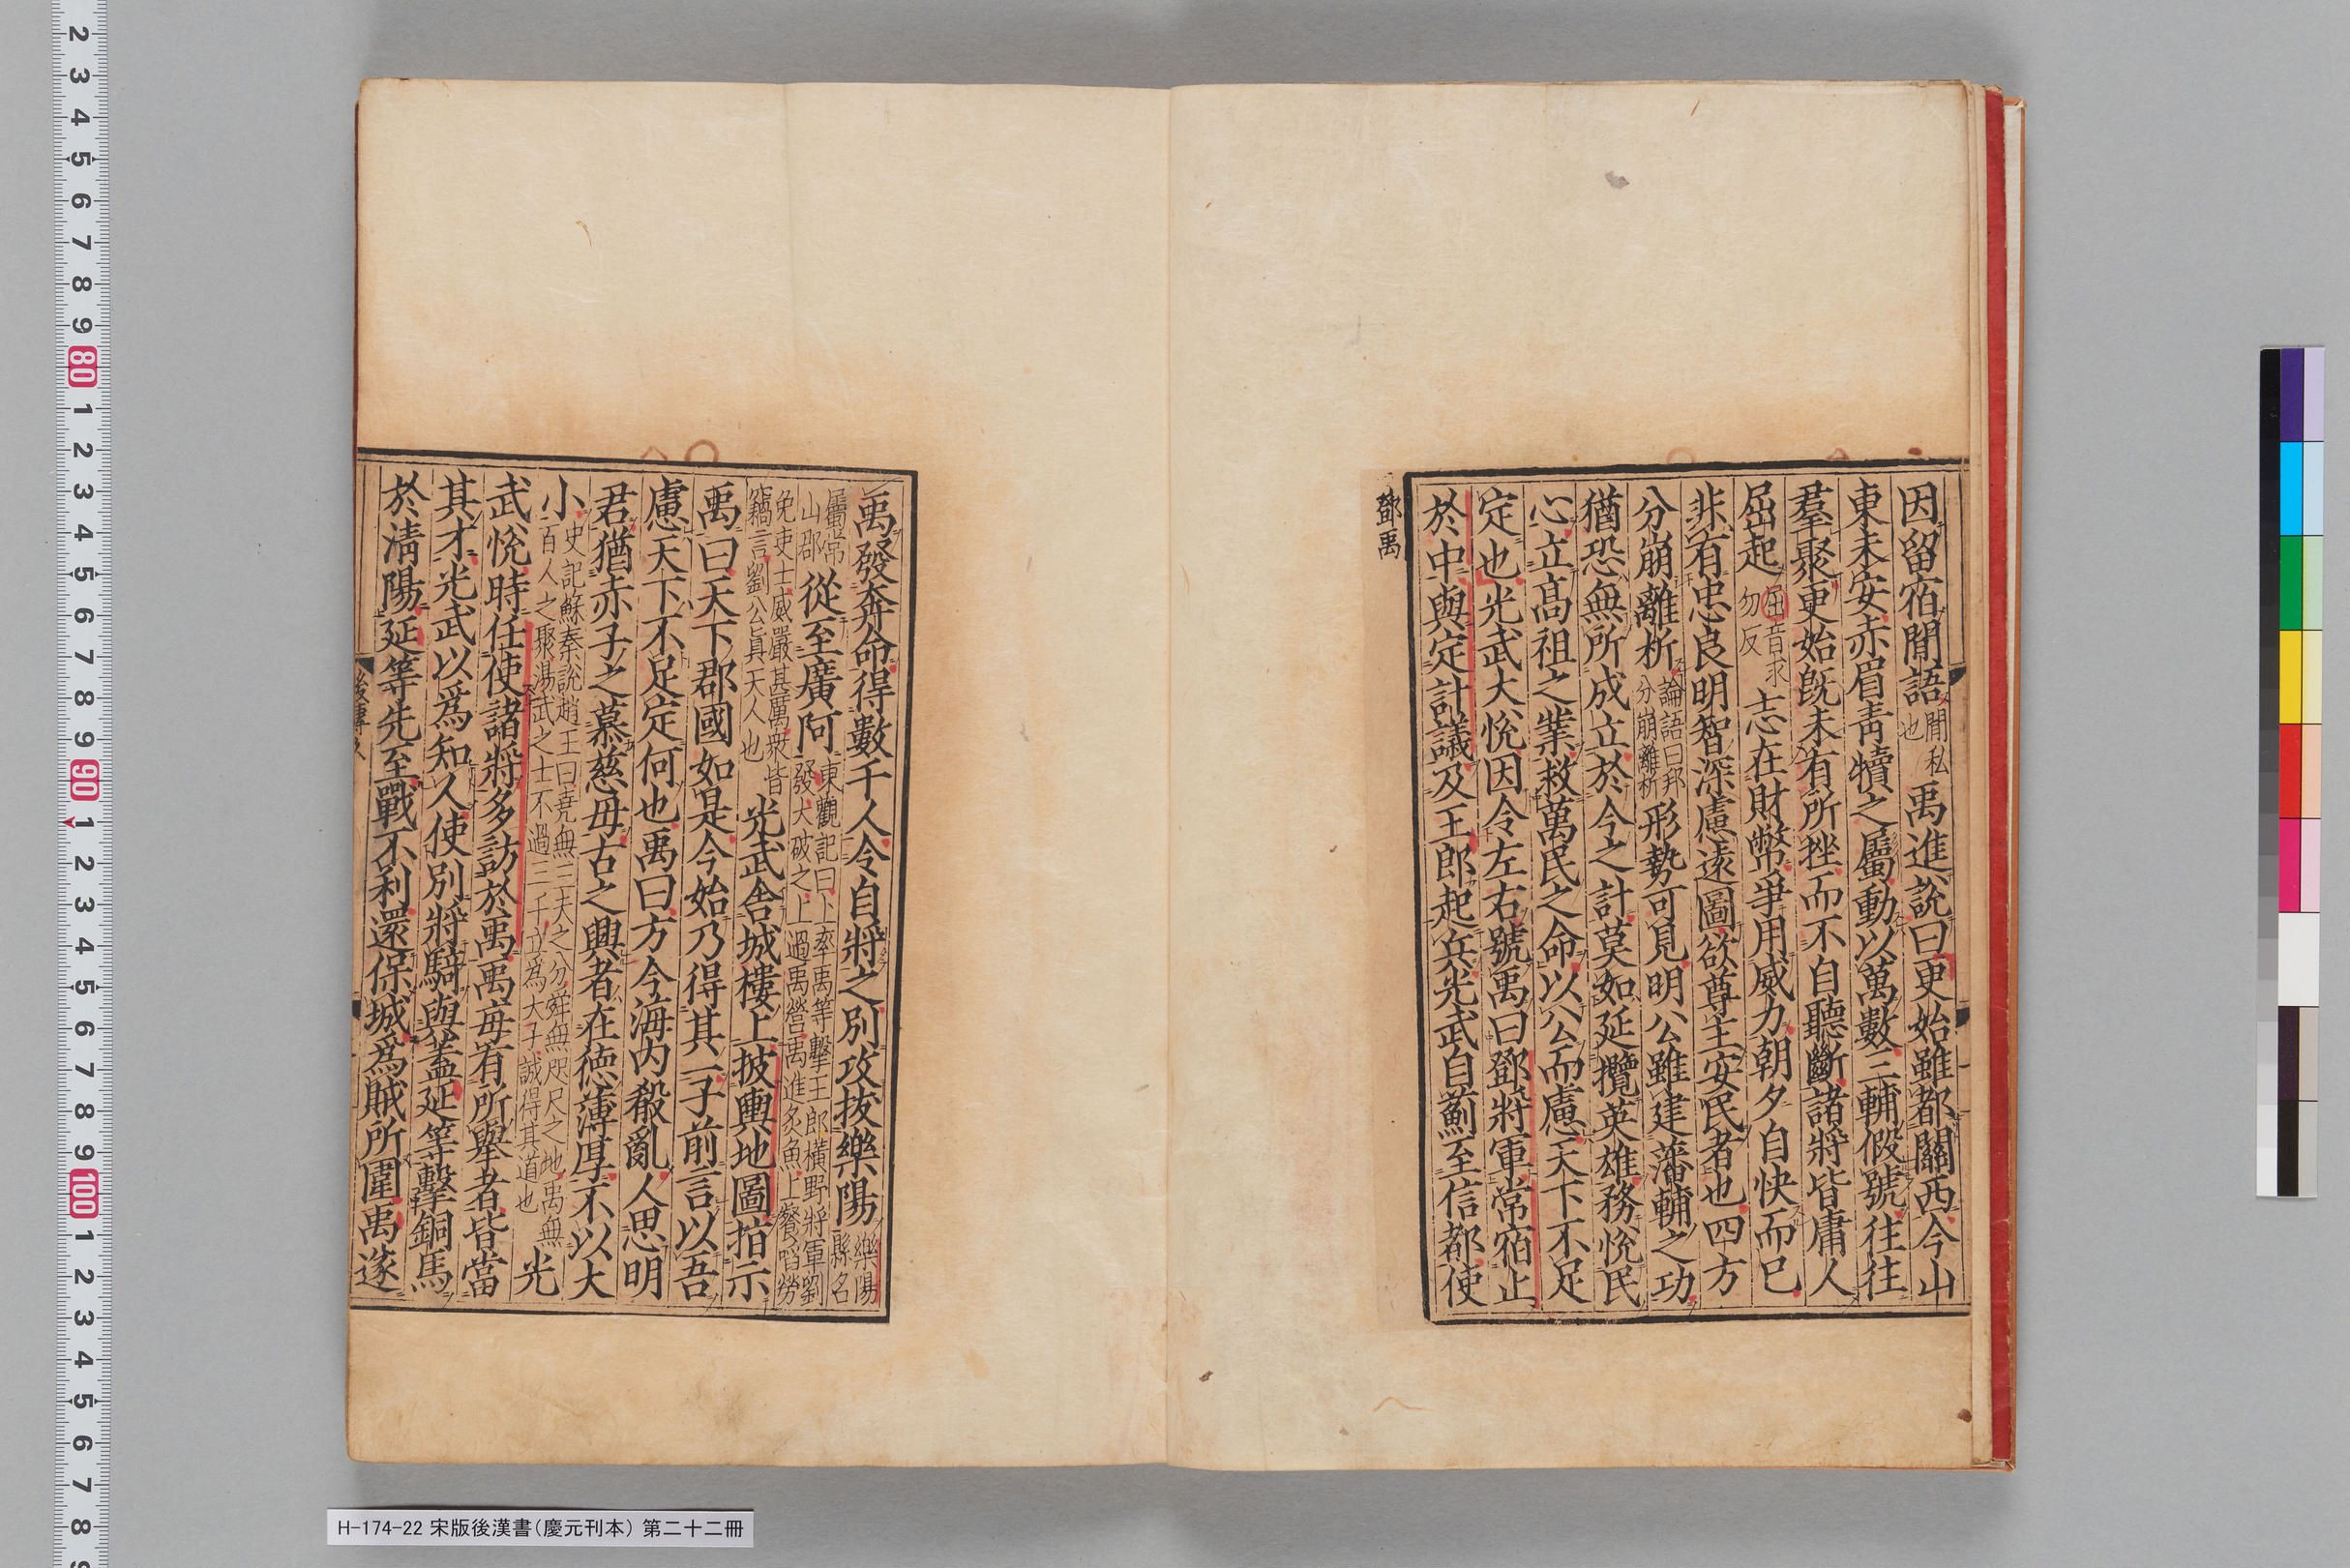 因留宿閒語閒私也禹進說曰更始雖都關西今山
東未安赤眉青犢之屬動以萬數三輔假號往往
羣聚更始旣未有所挫而不自聽斷諸將皆庸人
屈起屈音求勿反志在財幣爭用威力朝夕自快而已
非有忠良明智深慮遠圖欲尊主安民者也四方
分崩離析論語曰邦分崩離析形勢可見明公雖建藩輔之功
猶恐無所成立於今之計莫如延攬英雄務悅民
心立高祖之業救萬民之命以公而慮天下不足
定也光武大悅因令左右號禹曰鄧將軍常宿止
於中與定計議及王郎起兵光武自薊至信都使
鄧禹
禹發奔命得數千人令自將之別攻拔樂陽樂陽縣名
屬常山郡從至廣阿東觀記曰上率禹等擊王郎橫野將軍劉發大破之上過禹營禹進炙魚上餐啗勞
免吏士威嚴甚厲衆皆竊言劉公眞天人也光武舍城樓上披輿地圖指示
禹曰天下郡國如是今始乃得其一子前言以吾
慮天下不足定何也禹曰方今海内殽亂人思明
君猶赤子之慕慈母古之興者在德薄厚不以大
小史記蘇秦說趙王曰堯無三夫之分舜無咫尺之地禹無百人之聚湯武之士不過三千立爲大子誠得其道也光
武悅時任使諸將多訪於禹禹每有所舉者皆當
其才光武以爲知人使別將騎與蓋延等擊銅馬
於淸陽延等先至戰不利還保城爲賊所圍禹遂
H-174-22 宋版後漢書(慶元刊本) 第二十二冊